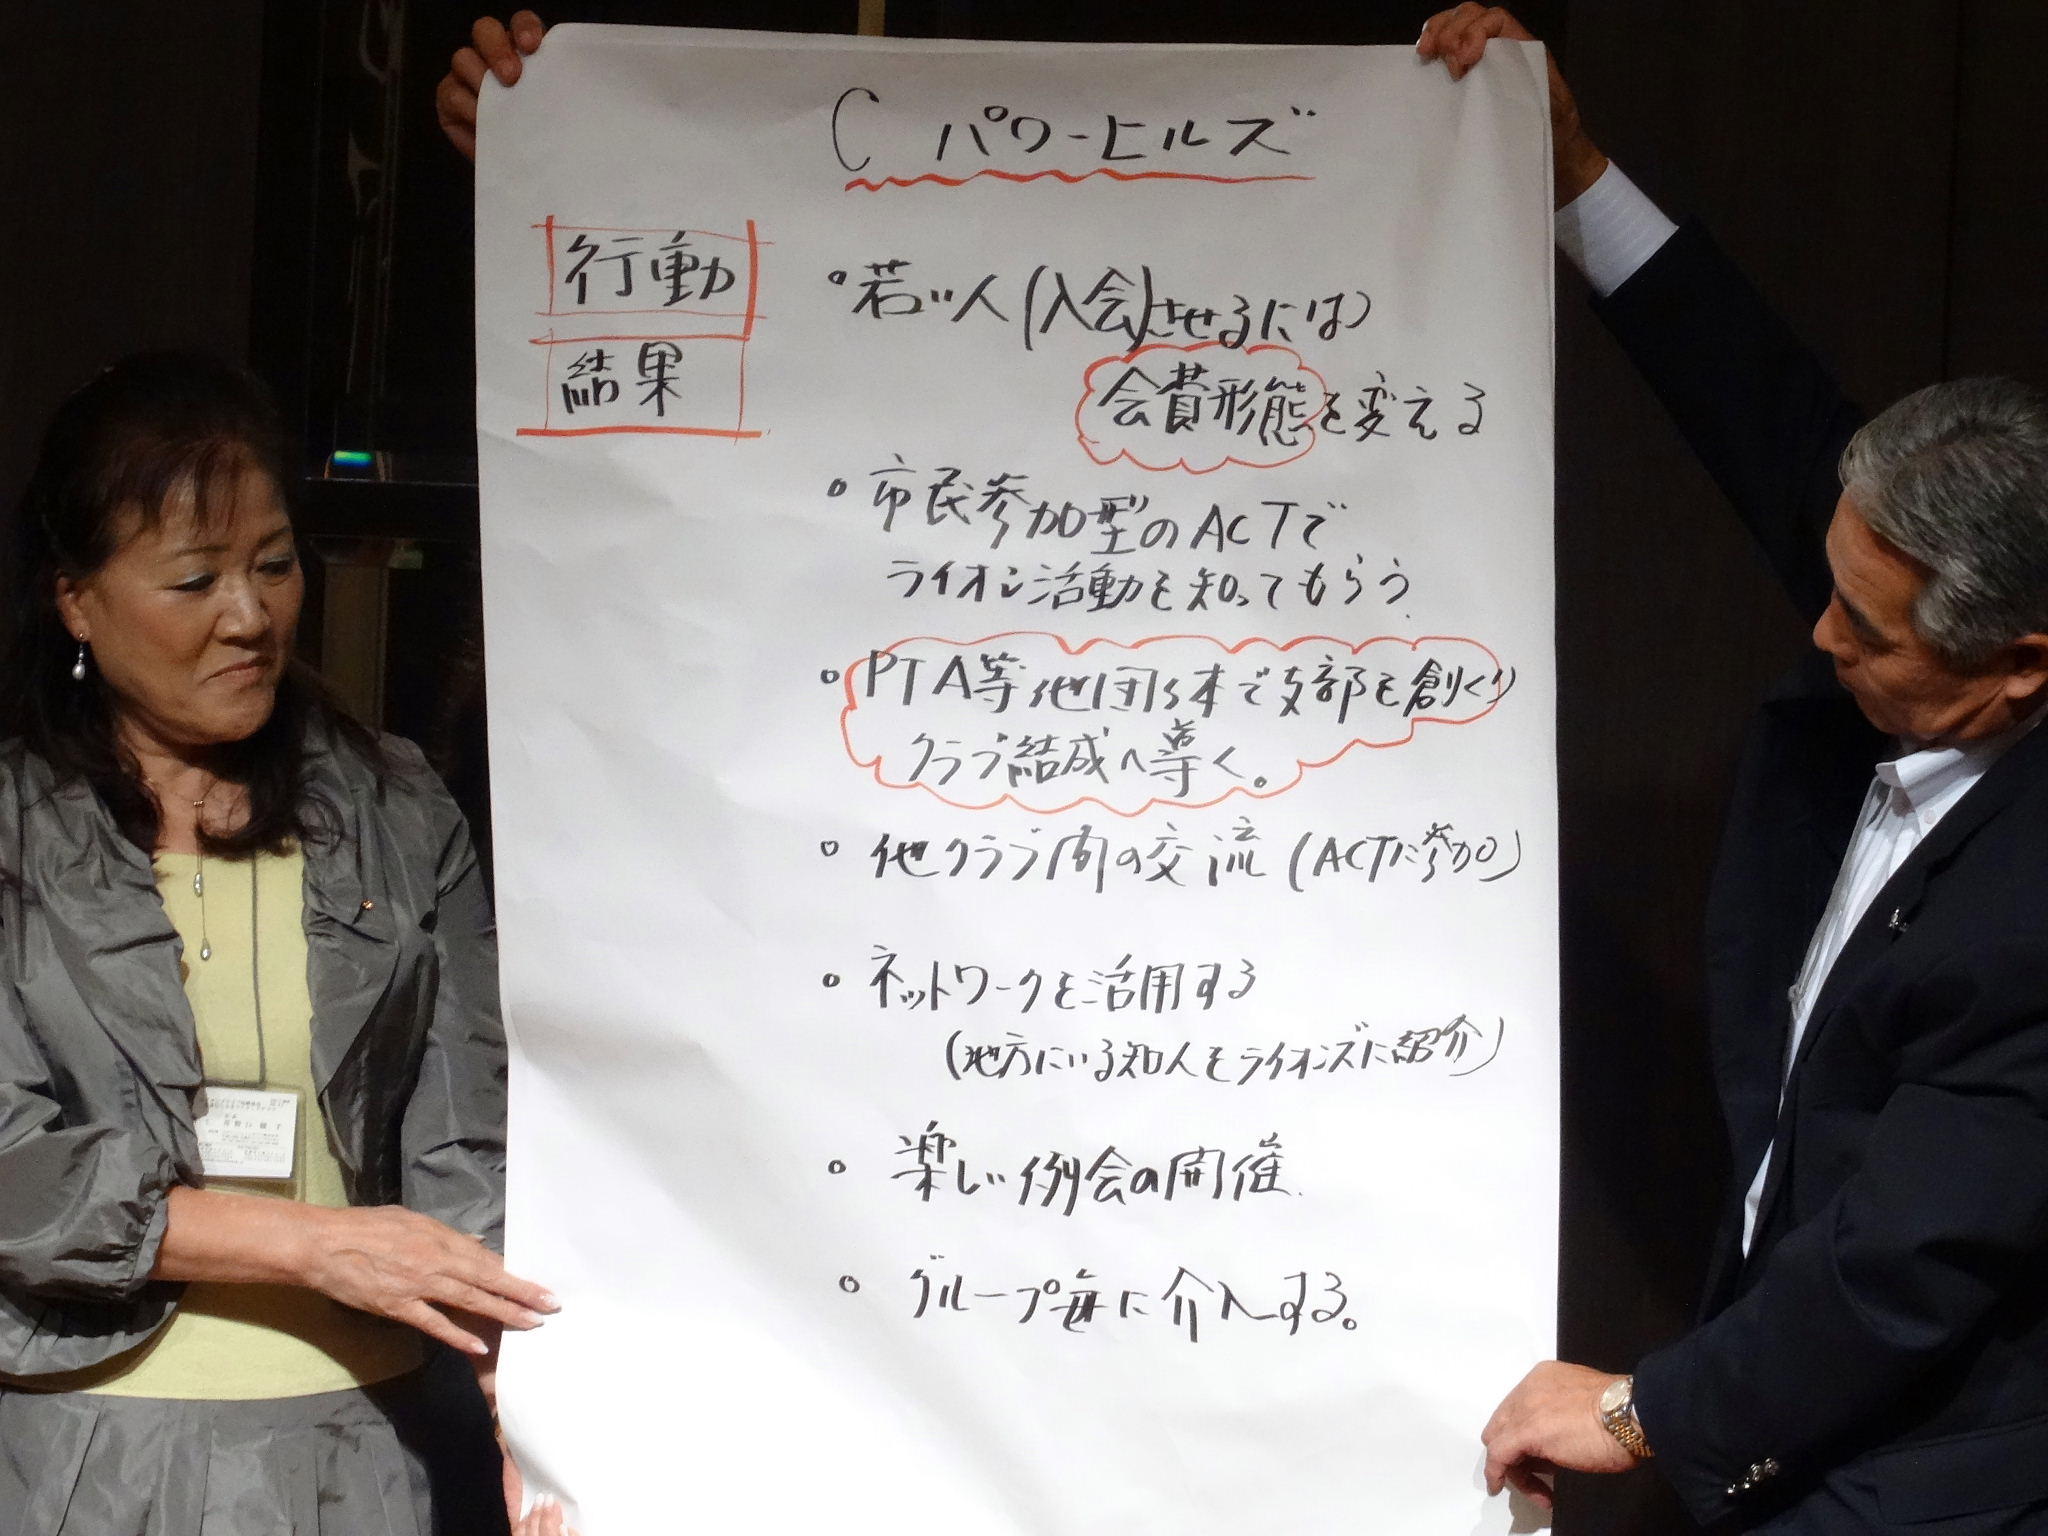 C パワーヒルズ
行動
結果
• 若い人(入会)させるには
会費形態を変える
• 市民参加型のACTで
ライオン活動を知ってもらう.
• PTA等他団体で支部を創くり
クラブ結成へ導く。
• 他クラブ間の交流 (ACTに参加)
• ネットワークを活用する
(地方にいる知人をライオンズに紹介)
• 楽しい例会の開催.
• グループ毎に介入する。